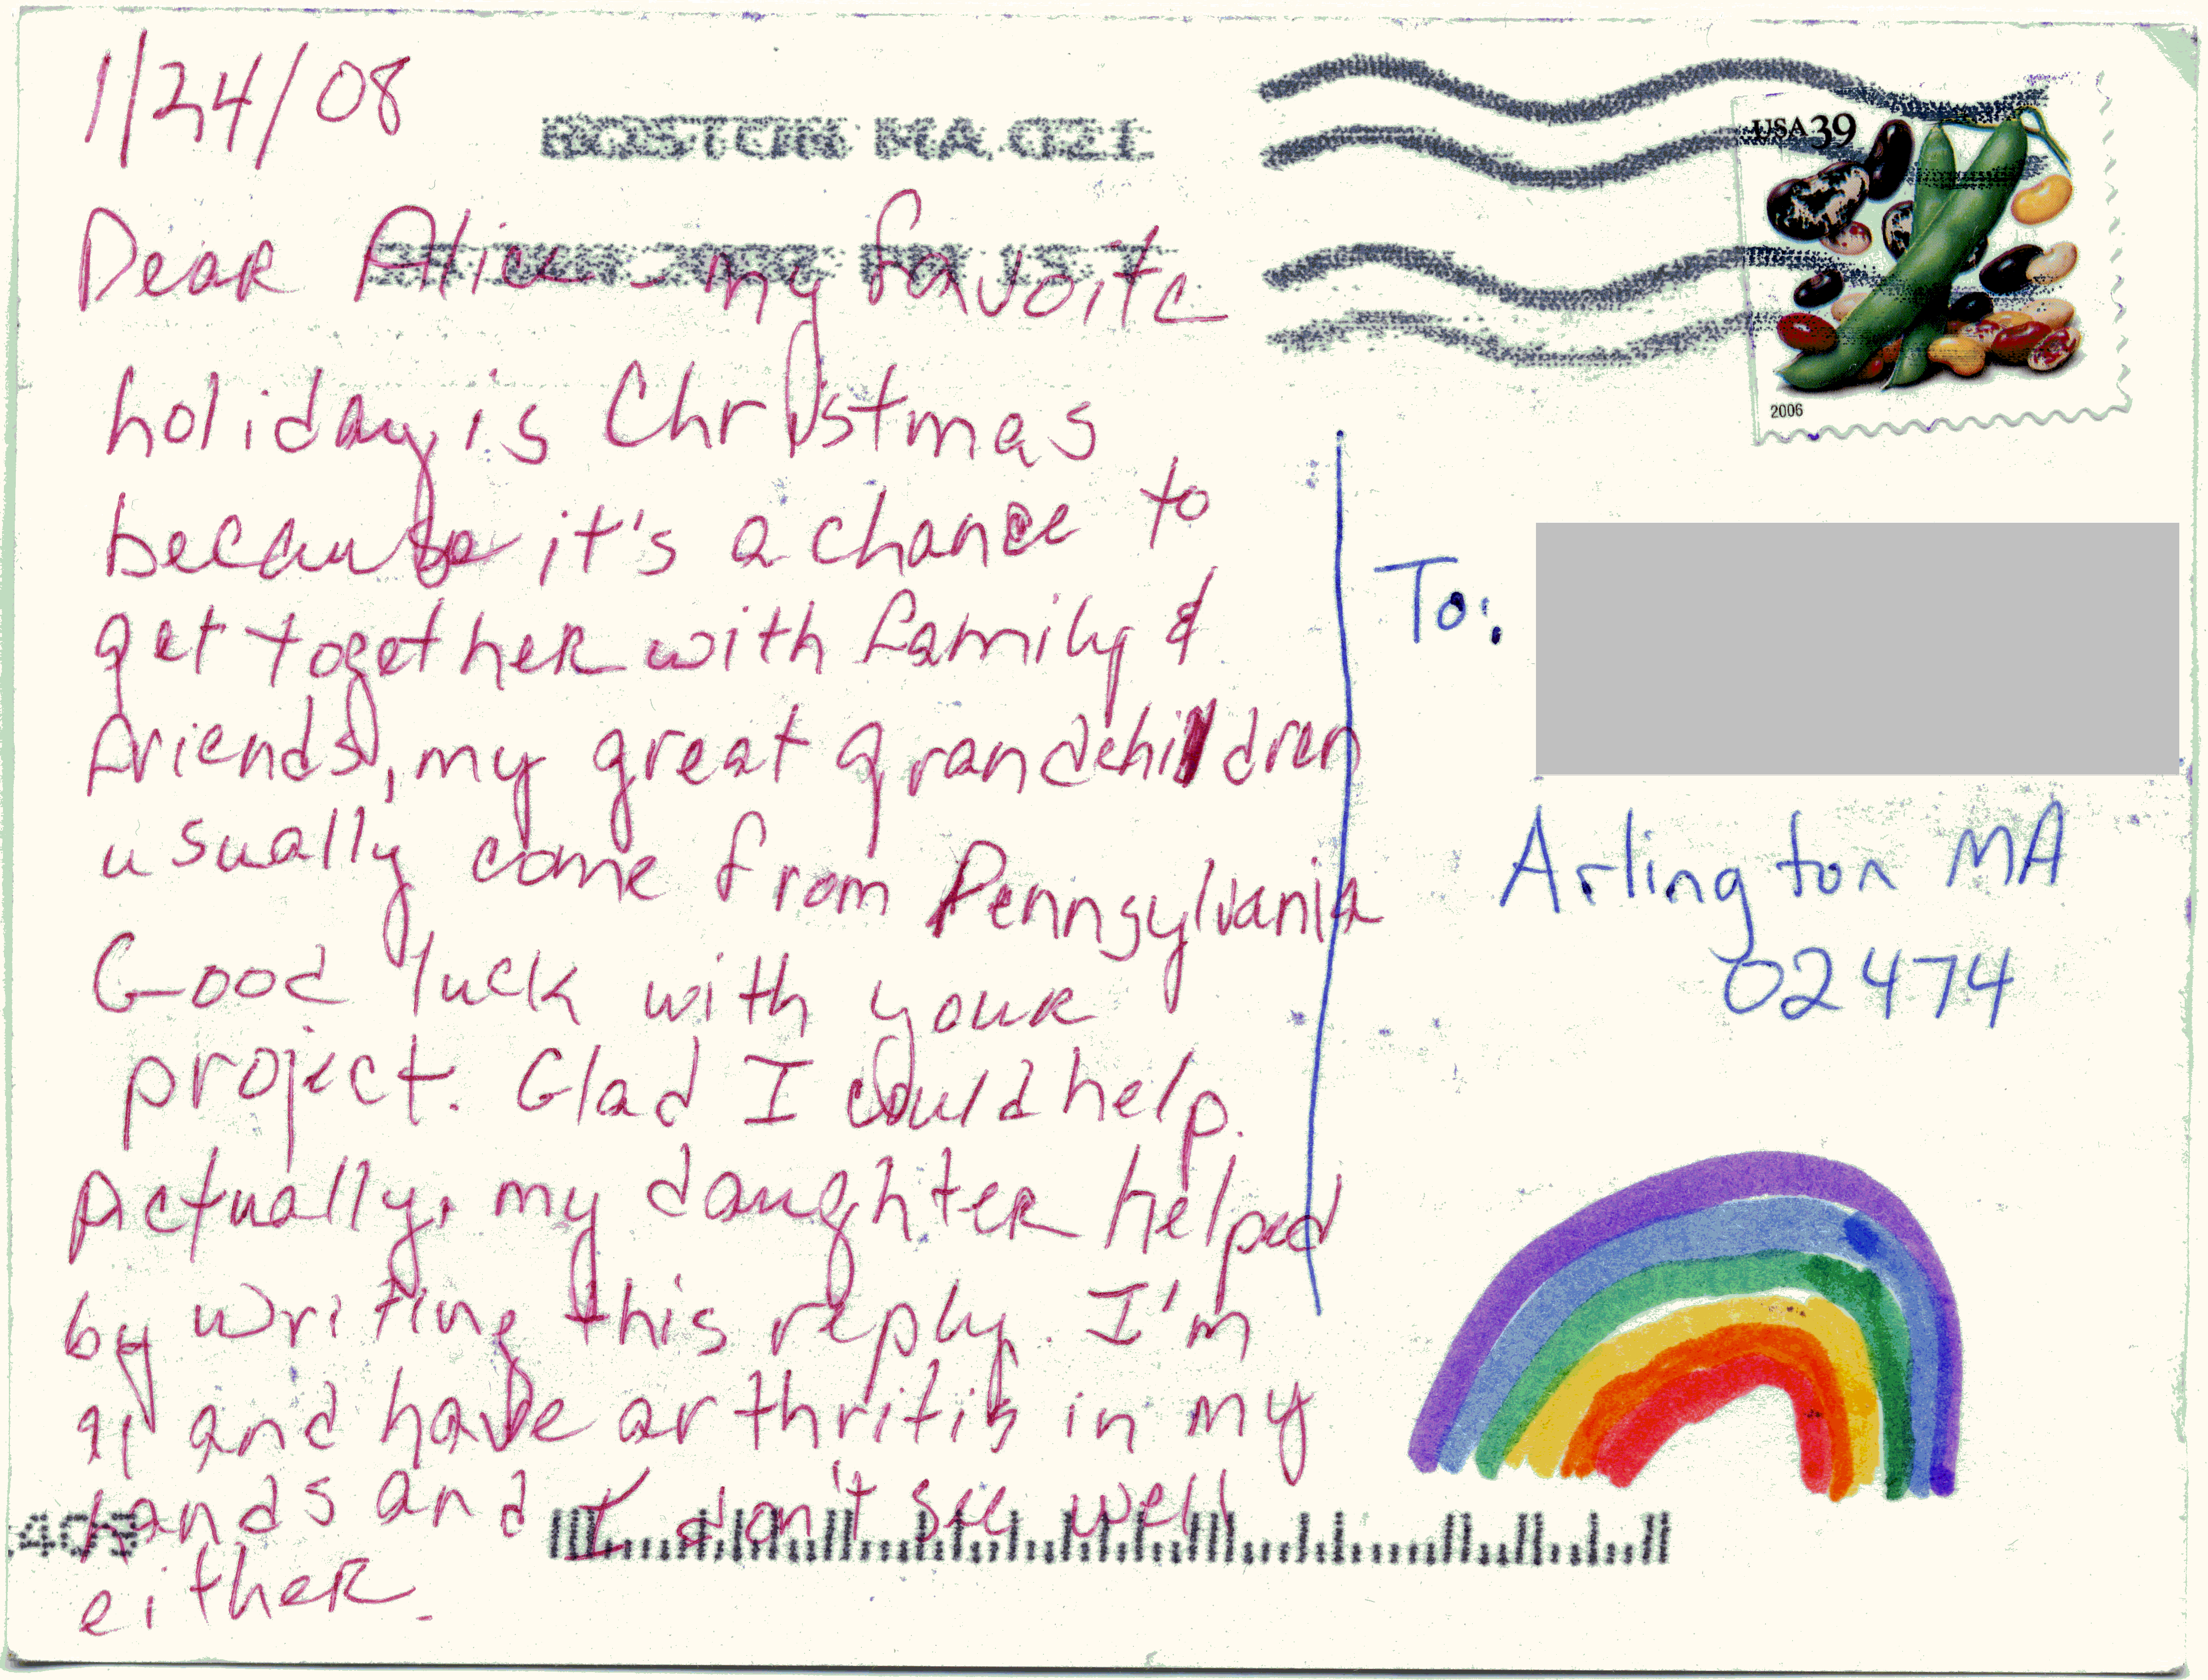 1/24/08
BOSTON MA 021
Dear Alice - my favoite
holiday is Christmas
because it's a chance to
get together with family &
friends, my great grandchildren
usually come from Pennsylvania
Good luck with your
project. Glad I could help.
Actually, my daughter helped
by writing this reply. I'm
91 and have arthritis in my
hands and I don't see well
either.
USA 39
2006
To:
Arlington MA
02474